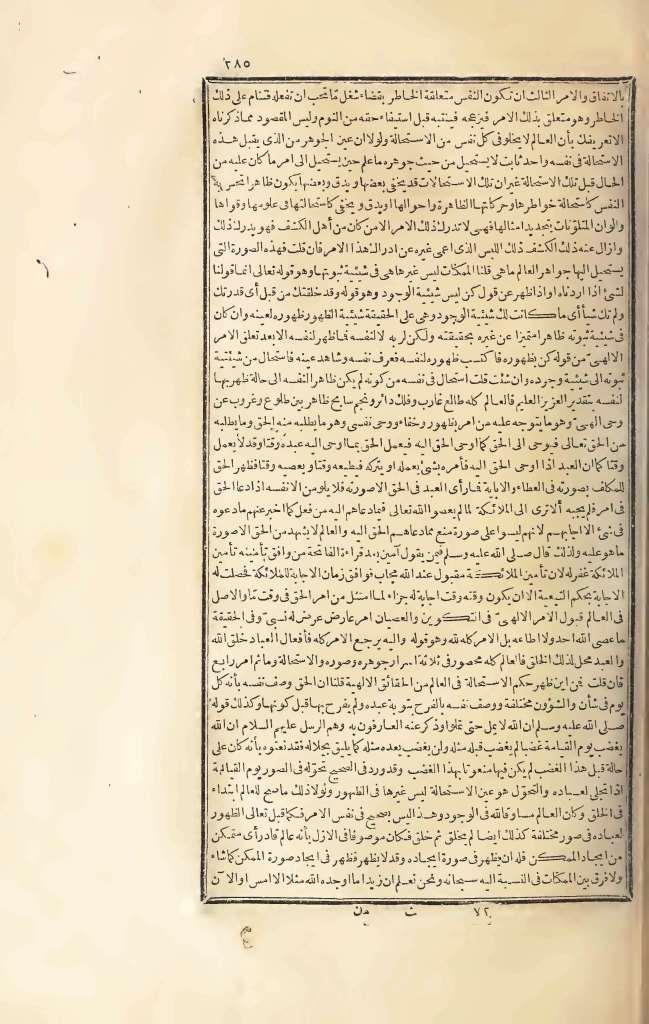 ٢٨٥
بالاتفاق والامر الثالث ان تكون النفس متعلقة الخاطر بقضاء شغل ما تحب ان تفعله فتنام على ذلك
الخاطر وهو متعلق بذلك الامر فيزعجه فينتبه قبل استيفاء حقه من النوم وليس المقصود مما ذكرناه
الا تعريفك بأن العالم لا يخلو في كل نفس من الاستحالة ولولا ان عين الجوهر من الذي يقبل هذه
الاستحالة في نفسه واحد ثابت لا يستحيل من حيث جوهره ما علم حين يستحيل الى امر ما كان عليه من
الحال قبل تلك الاستحالة غير ان تلك الاستحالات قد يخفى بعضها ويدق وبعضها يكون ظاهرا تحس به
النفس كاستحالة خواطرها وحركاتها الظاهرة واحوالها ويدق ويخفى كاستحالتها في علومها وقواها
والوان المتلونات بتجديد امثالها فهي لا تدرك ذلك الامر الا من كان من أهل الكشف فهو يدرك ذلك
وازال عنه ذلك الكشف ذلك اللبس الذي اعمى غيره عن ادراك هذا الامر فان قلت فهذه الصورة التي
يستحيل اليها جواهر العالم ما هي قلنا الممكنات ليس غيرها هي في شيئية ثبوتها وهو قوله تعالى انما قولنا
لشئ اذا اردناه او اذا ظهر عن قول كن ليس شيئية الوجود وهو قوله وقد خلقتك من قبل أي قدرتك
ولم تك شيأ أي ما كانت لك شيئية الوجود وهي على الحقيقة شيئية الظهور ظهوره لعينه وان كان
في شيئية ثبوته ظاهرا متميزا عن غيره بحقيقته ولكن لربه لا لنفسه فما ظهر لنفسه الا بعد تعلق الامر
الالهي من قوله كن بظهوره فاكتسب ظهوره لنفسه فعرف نفسه وشاهد عينه فاستحال من شيئية
ثبوته الى شيئية وجوده وان شئت قلت استحال في نفسه من كونه لم يكن ظاهرا لنفسه الى حالة ظهر بها
لنفسه بتقدير العزيز العليم فالعالم كله طالع غارب وفلك دائر ونجم سابح ظاهر بين طلوع وغروب عن
وحي الهي وهو ما يتوجه عليه من امر بظهور وخفاء ووحي نفسي وهو ما يطلبه منه الحق وما يطلبه
من الحق تعالى فيوحى الى الحق كما اوحى الحق اليه فيعمل الحق بما اوحى اليه عبده وقتا وقد لا يعمل
وقتا كما ان العبد اذا اوحى الحق اليه فأمره بشئ يعمله او يتركه فيطيعه وقتا ويعصيه وقتا فظهر الحق
للمكلف بصورته في العطاء والاباية فما رأى العبد في الحق الا صورته فلا يلومن الا نفسه اذا دعا الحق
في امر فلم يجبه ألا ترى الى الملائكة لما لم يعصوا الله تعالى فيما دعاهم اليه من فعل كما اخبر عنهم ما دعوه
في شئ الا اجابهم لانهم ليسوا على صورة منع مما دعاهم الحق اليه والعالم لا يشهد من الحق الا صورة
ما هو عليه ولذلك قال صلى الله عليه وسلم فيمن يقول آمين بعد قراءة الفاتحة من وافق تأمينه تأمين
الملائكة غفر له لان تأمين الملائكة مقبول عند الله مجاب فوافق زمان الاجابة للملائكة فحصلت له
الاجابة بحكم التبعية الا ان يكون وقته وقت اجابة له جزاء لما امتثل من امر الحق في وقت ما والاصل
في العالم قبول الامر الالهي في التكوين والعصيان امر عارض عرض له نسبي وفي الحقيقة
ما عصى الله احد ولا اطاعه بل الامر كله لله وهو قوله واليه يرجع الامر كله فأفعال العباد خلق الله
والعبد محل لذلك الخلق فالعالم كله محصور في ثلاثة اسرار جوهره وصوره والاستحالة وما ثم امر رابع
فان قلت فمن اين ظهر حكم الاستحالة في العالم من الحقائق الالهية قلنا ان الحق وصف نفسه بأنه كل
يوم في شأن والشؤون مختلفة ووصف نفسه بالفرح بتوبة عبده ولم يفرح بها قبل كونها وكذلك قوله
صلى الله عليه وسلم ان الله لا يمل حتى تملوا وذكر عنه العارفون به وهم الرسل عليهم السلام ان الله
يغضب يوم القيامة غضبا لم يغضب قبله مثله ولن يغضب بعده مثله كما يليق بجلاله فقد نعتوه بأنه كان على
حالة قبل هذا الغضب لم يكن فيها منعوتا بهذا الغضب وقد ورد في الصحيح تحوله في الصور يوم القيامة
اذا تجلى لعباده والتحول هو عين الاستحالة ليس غيرها في الظهور ولولا ذلك ما صح للعالم ابتداء
في الخلق وكان العالم مساوقا لله في الوجود وهذا ليس بصحيح في نفس الامر فكما قبل تعالى الظهور
لعباده في صور مختلفة كذلك ايضا لم يخلق ثم خلق فكان موصوفا في الازل بأنه عالم قادر أي متمكن
من ايجاد الممكن فله ان يظهر في صورة ايجاده وقد لا يظهر فظهر في ايجاد صورة الممكن كما شاء
ولا فرق بين الممكنات في النسبة اليه سبحانه ونحن نعلم ان زيدا ما اوجده الله مثلا الا امس او الآن
٧٢ ث